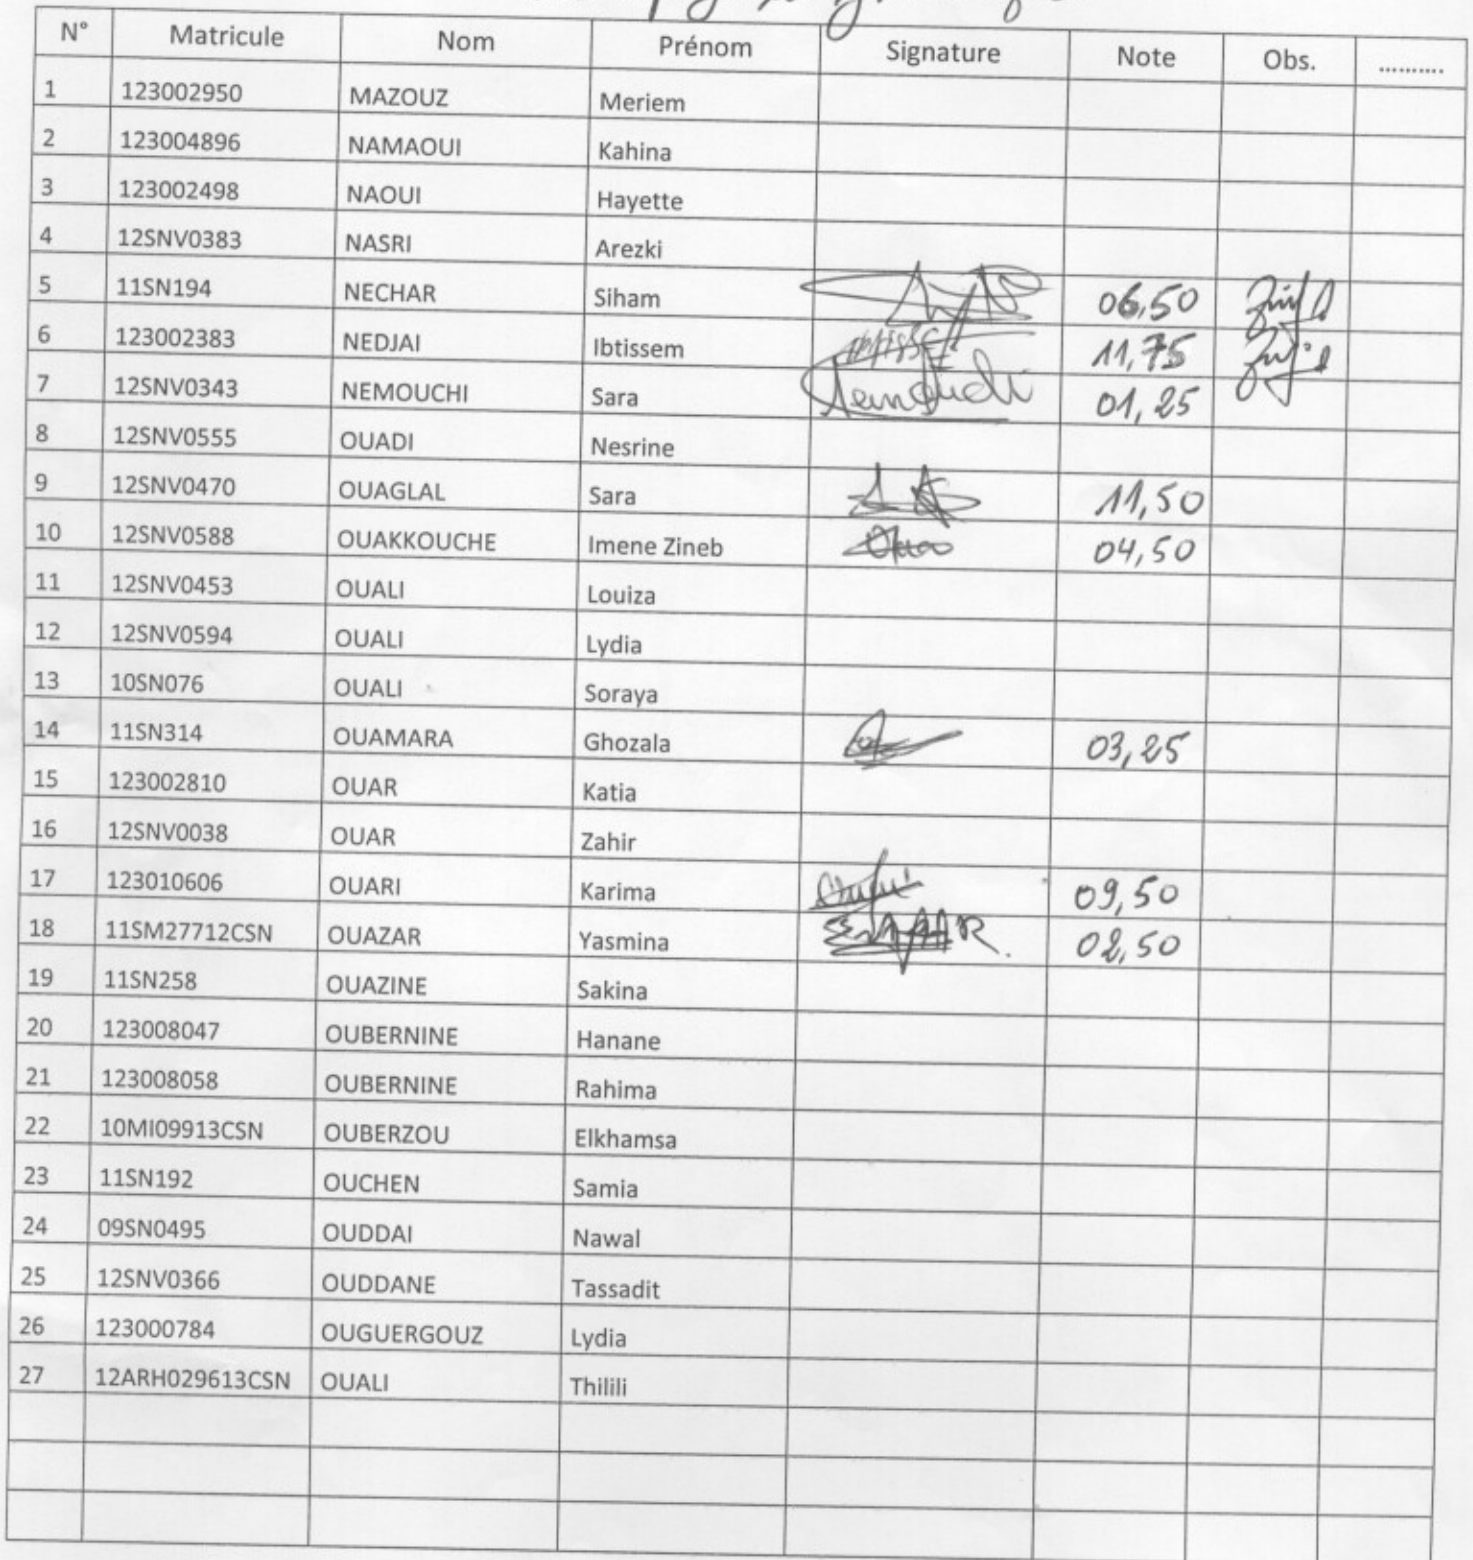 N° Matricule Nom Prénom Signature Note Obs. ..........
1 123002950 MAZOUZ Meriem
2 123004896 NAMAOUI Kahina
3 123002498 NAOUI Hayette
4 12SNV0383 NASRI Arezki
5 11SN194 NECHAR Siham 06,50
6 123002383 NEDJAI Ibtissem 11,75
7 12SNV0343 NEMOUCHI Sara 01,25
8 12SNV0555 OUADI Nesrine
9 12SNV0470 OUAGLAL Sara 11,50
10 12SNV0588 OUAKKOUCHE Imene Zineb 04,50
11 12SNV0453 OUALI Louiza
12 12SNV0594 OUALI Lydia
13 10SN076 OUALI Soraya
14 11SN314 OUAMARA Ghozala 03,25
15 123002810 OUAR Katia
16 12SNV0038 OUAR Zahir
17 123010606 OUARI Karima 09,50
18 11SM27712CSN OUAZAR Yasmina 02,50
19 11SN258 OUAZINE Sakina
20 123008047 OUBERNINE Hanane
21 123008058 OUBERNINE Rahima
22 10MI09913CSN OUBERZOU Elkhamsa
23 11SN192 OUCHEN Samia
24 09SN0495 OUDDAI Nawal
25 12SNV0366 OUDDANE Tassadit
26 123000784 OUGUERGOUZ Lydia
27 12ARH029613CSN OUALI Thilili